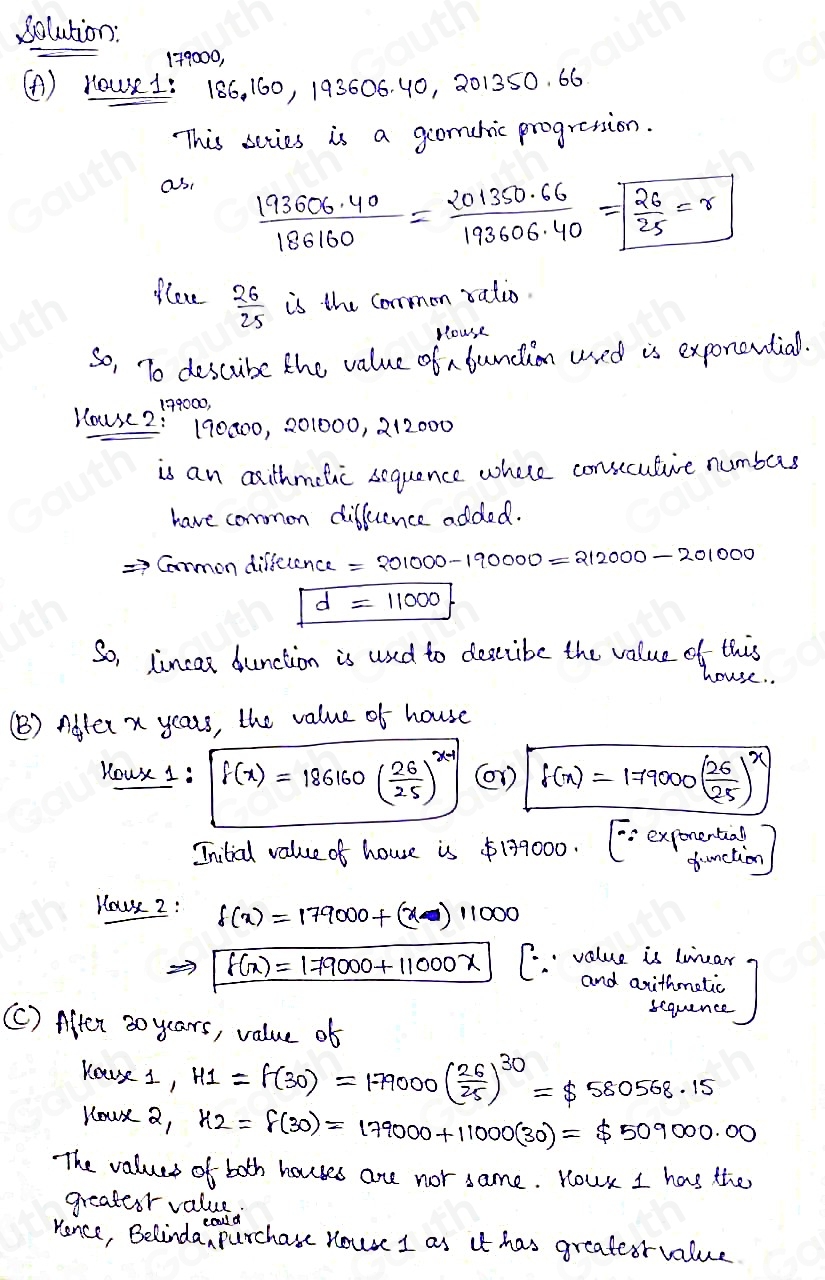 Solution:
179000,
(A) House 1: 186,160, 193606.40, 201350.66
This series is a geometric progression.
as, 193606.40/186160 = 201350.66/193606.40 = 26/25 = r
Here 26/25 is the common ratio.
House
So, To describe the value of ^ function used is exponential.
179000,
House 2: 190000, 201000, 212000
is an arithmetic sequence where consecutive numbers
have common difference added.
⇒ Common difference = 201000-190000 = 212000-201000
d = 11000
So, linear function is used to describe the value of this
house..
(B) After x years, the value of house
House 1: f(x) = 186160 (26/25)^x-1 (or) f(x) = 179000 (26/25)^x
Initial value of house is $179000. [∵ exponential
function]
House 2: f(x) = 179000 + (x ) 11000
⇒ f(x) = 179000 + 11000x [∵ value is linear
and arithmetic
sequence]
(C) After 30 years, value of
House 1, H1 = f(30) = 179000 (26/25)^30 = $580568.15
House 2, H2 = f(30) = 179000 + 11000(30) = $509000.00
The values of both houses are not same. House 1 has the
greatest value.
could
Hence, Belinda ^ purchase House 1 as it has greatest value.
Gauth